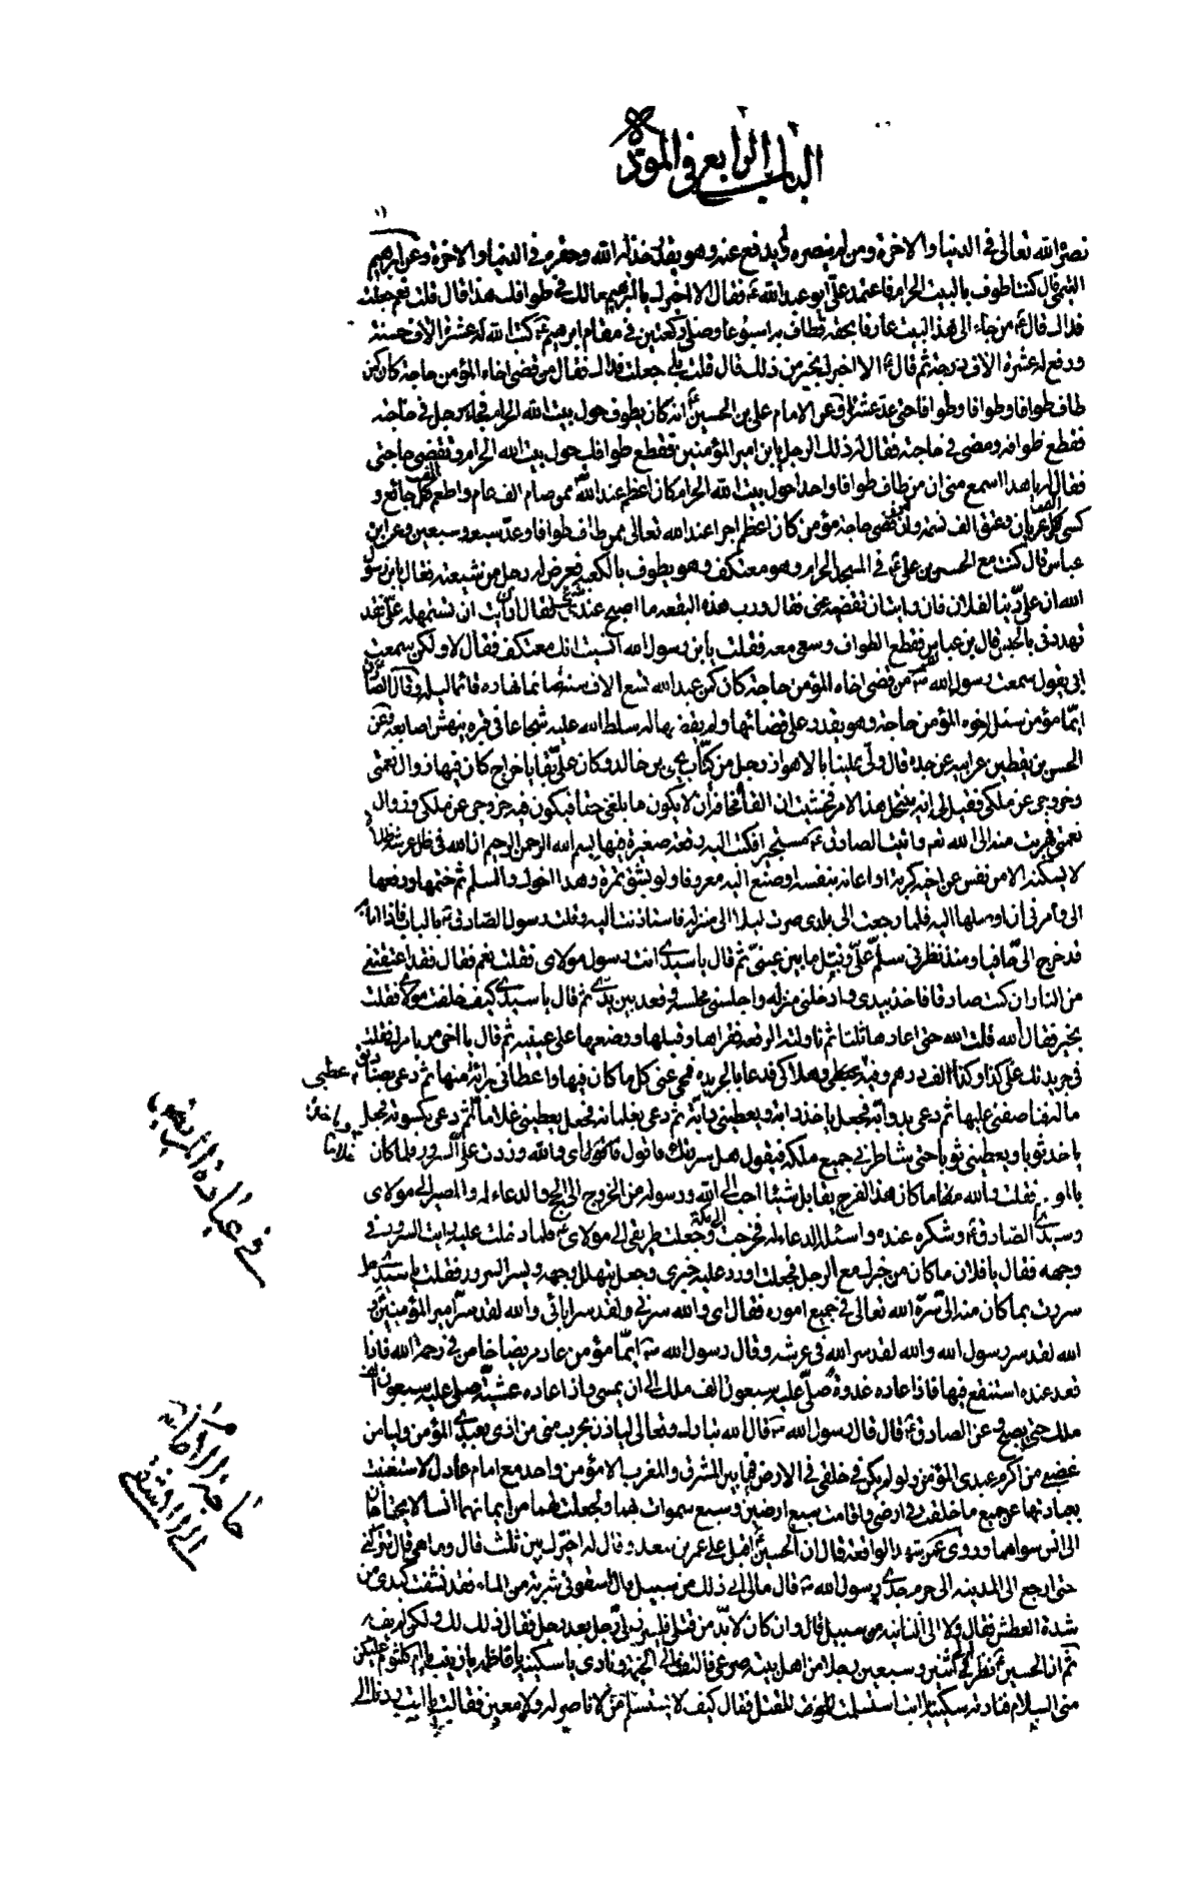 الباب الرابع في المودة
نصره الله تعالى في الدنيا والاخرة ومن لم ينصره ولم يدفع عنه وهو يقدر خذله الله وحقره في الدنيا والاخرة وعن ابرهيم
التيمي قال كنت اطوف بالبيت الحرام فاعتمد علي ابو عبد الله ع فقال الا اخبرك يا ابرهيم مالك في طوافك هذا قال قلت نعم جعلت
فداك قال ع من جاء الى هذا البيت عارفا بحقه فطاف به اسبوعا وصلى ركعتين في مقام ابرهيم ع كتب الله له عشرة الاف حسنة
ورفع له عشرة الاف درجة ثم قال ع الا اخبرك بخير من ذلك قال قلت بلى جعلت فداك فقال من قضى اخاه المؤمن حاجة كان كمن
طاف طوافا وطوافا وطوافا حتى عد عشرا وعن الامام علي بن الحسين ع انه كان يطوف حول بيت الله الحرام فجاءه رجل في حاجته
فقطع طوافه ومضى في حاجته فقال له ذلك الرجل يا ابن امير المؤمنين تقطع طوافك حول بيت الله الحرام وتقضى حاجتي
فقال له يا هذا اسمع مني ان من طاف طوافا واحدا حول بيت الله الحرام كان اعظم عند الله ممن صام الف عام واطعم الف جائع و
كسى الف عريان وعتق الف نسمة وان من قضى حاجة مؤمن كان اعظم اجرا عند الله تعالى ممن طاف طوافا وعد سبعة وسبعين وعن ابن
عباس قال كنت مع الحسن بن علي ع في المسجد الحرام وهو معتكف وهو يطوف بالكعبة فعرض له رجل من شيعته فقال يا ابن رسول
الله ان علي دينا لفلان فان رايت ان تقضيه عني فقال ورب هذه البقعة ما اصبح عندي شيء فقال ان رايت ان تستمهله عني فقد
تهددني بالحبس قال بن عباس فقطع الطواف وسعى معه فقلت يا بن رسول الله انسيت انك معتكف فقال لا ولكن سمعت
ابي يقول سمعت رسول الله ص من قضى اخاه المؤمن حاجة كان كمن عبد الله تسع الاف سنة صائما نهاره قائما ليله وقال الصادق
ايما مؤمن سئل اخوه المؤمن حاجة وهو يقدر على قضائها ولم يقض بها له سلط الله عليه شجاعا في قبره ينهش اصابعه وعن
الحسن بن يقطين عن ابيه عن جده قال ولى علينا بالاهواز رجل من كتاب يحيى بن خالد وكان علي بقايا خراج كان فيها زوال نعمتي
وخروجي عن ملكي فقيل لي انه ينتحل هذا الامر فخشيت ان القاه مخافة ان لا يكون ما بلغني حقا فيكون فيه خروجي عن ملكي وزوال
نعمتي فهربت منه الى الله تع واتيت الصادق ع مستجيرا فكتب اليه رقعة صغيرة فيها بسم الله الرحمن الرحيم ان لله في ظل عرشه ظلالا
لا يسكنه الا من نفس عن اخيه كربة او اعانه بنفسه او صنع اليه معروفا ولو بشق تمرة وهذا اخوك والسلم ثم ختمها ودفعها
الي وامرني ان اوصلها اليه فلما رجعت الى بلدي صرت ليلا الى منزله فاستاذنت اليه وقلت رسول الصادق ع بالباب فاذا انا به
قد خرج الي حافيا ومنذ نظرني سلم علي وقبل ما بين عيني ثم قال يا سيدي انت رسول مولاي فقلت نعم فقال فقد اعتقتني
من النار ان كنت صادقا فاخذ بيدي وادخلني منزله واجلسني مجلسه وقعد بين يدي ثم قال يا سيدي كيف خلفت مولاي فقلت
بخير فقال الله قلت الله حتى اعادها ثلثا ثم ناولته الرقعة فقراها وقبلها ووضعها على عينيه ثم قال يا اخي مر بامرك فقلت
في جريدتك علي كذا وكذا الف درهم وفيه عطبي وهلاكي فدعا بالجريدة فمحى عني كل ما كان فيها واعطاني براءة منها ثم دعى بصناديق
ماله فناصفني عليها ثم دعى بدوابه فجعل ياخذ دابة ويعطيني دابة ثم دعى بغلمانه فجعل يعطيني غلاما ثم دعى بكسوته فجعل
وياخذ غلاما
ياخذ ثوبا ويعطيني ثوبا حتى شاطرني جميع ملكه فيقول هل سررتك فاقول اي والله وزدت على السرور فلما كان
فقلت والله ما كان هذا الفرج يقابل شيئا احب الى الله ورسوله من الخروج الى الحج والدعاء له والمصير الى مولاي
وسيدي الصادق ع وشكره عنده واسئله الدعاء له فخرجت الى مكة وجعلت طريقي الى مولاي ع فلما دخلت عليه رايت السرور في
وجهه فقال يا فلان ما كان من خبرك مع الرجل فجعلت اورد عليه خبري وجعل يتهلل وجهه ويسر السرور فقلت يا سيدي هل
سررت بما كان منه الي سره الله تعالى في جميع اموره فقال اي والله سرني ولقد سر ابائي والله لقد سر امير المؤمنين ع
الله لقد سر رسول الله والله لقد سر الله في عرشه وقال رسول الله ص ايما مؤمن عاد مريضا خاص في رحمة الله فاذا
قعد عنده استنقع فيها فاذا عاده غدوة صلى عليه سبعون الف ملك الى ان يمسي واذا عاده عشية صلى عليه سبعون الف
ملك حتى يصبح وعن الصادق ع قال قال رسول الله ص قال الله تبارك وتعالى لياذن بحرب مني من اذى عبدي المؤمن وليامن
غضبي من اكرم عبدي المؤمن ولو لم يكن في خلقي في الارض فيما بين المشرق والمغرب الا مؤمن واحد مع امام عادل لاستغنيت
بعبادتهما عن جميع ما خلقت في ارضي ولقامت سبع ارضين وسبع سموات بهما ولجعلت لهما من ايمانهما انسا لا يحتاجان
الى انس سواهما وروى عمن شهد الواقعة قال ان الحسين ع اقبل على عمر بن سعد وقال له اخيرك بين ثلث قال وما هي قال تتركني
حتى ارجع الى المدينة الى حرم جدي رسول الله ص قال مالي الى ذلك من سبيل قال اسقوني شربة من الماء فقد نشفت كبدي من
شدة العطش فقال ولا الى الثانية من سبيل قال وان كان لا بد من قتلي فليبرز الي رجل بعد رجل فقال ذلك لك
ثم ان الحسين ع نظر الى اثنين وسبعين رجلا من اهل بيته صرعى فالتفت الى الخيمة ونادى يا سكينة يا فاطمة يا زينب يا ام كلثوم عليكن
مني السلام فنادته سكينة يا ابت استسلمت للموت فقال كيف لا يستسلم من لا ناصر له ولا معين فقالت يا ابت ردنا الى
في عيادة المريض